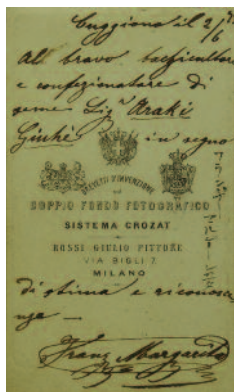 Cuggiono il 2/6
Al bravo bachicultore
e confezionatore di
seme Sig.r Araki
Giuhè in segno
BREVETTO D'INVENZIONE
DOPPIO FONDO FOTOGRAFICO
SISTEMA CROZAT
ROSSI GIULIO PITTORE
VIA BIGLI 7.
MILANO
di stima e riconoscen
za —
Franz Margarito